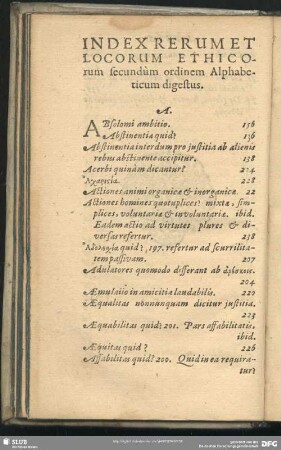 INDEX RERUM ET
LOCORUM ETHICO-
rum secundùm ordinem Alphabe-
ticum digestus.
A.
ABsolomi ambitio. 156
Abstinentia quid? 136
Abstinentia interdum pro justitia ab alienis
rebus abstinente accipitur. 138
Acerbi quinam dicantur? 204
228
Actiones animi organicæ & inorganicæ 22
Actiones hominis quotuplices? mixtæ, sim-
plices, voluntariæ & involuntariæ. ibid.
Eadem actio ad virtutes plures & di-
versas refertur. 238
quid?, 197. refertur ad scurrilita-
tem passivam. 207
Adulatores quomodo differant ab
204
Æmulatio in amicitia laudabilis. 220
Æqualitas nonnunquam dicitur justitia.
223
Æquabilitas quid? 201. Pars affabilitatis,
ibid.
Æquitas quid? 226
Affabilitas quid? 200. Quid in ea requira-
tur?
SLUB
DFG